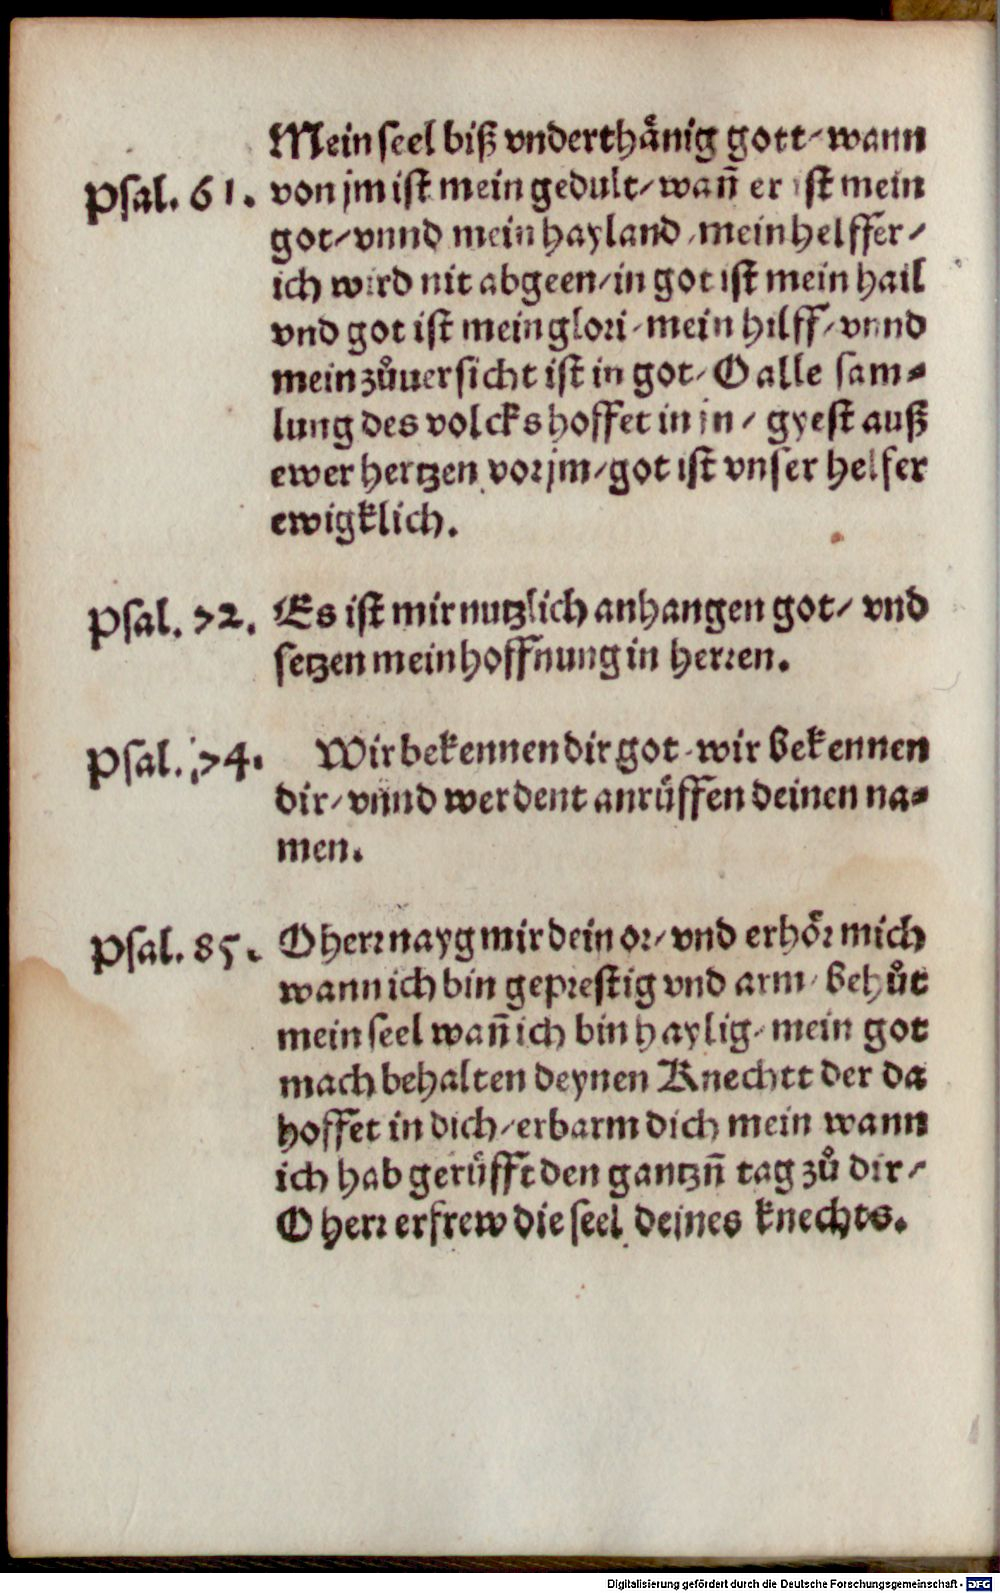 Mein seel biß vnderthånig gott/ wann
Psal. 61. von jm ist mein gedult/ wañ er ist mein
got/ vnnd mein hayland/ mein helffer/
ich wird nit abgeen/ in got ist mein hail
vnd got ist mein glori/ mein hilff/ vnnd
mein zůuersicht ist in got/ O alle sam⸗
lung des volcks hoffet in jn/ gyest auß
ewer hertzen vor jm/ got ist vnser helfer
ewigklich.
Psal. 72. Es ist mir nutzlich anhangen got/ vnd
setzen mein hoffnung in herren.
Psal. 74. Wir bekennen dir got/ wir bekennen
dir/ vnnd werdent anrüffen deinen na⸗
men.
Psal. 85. O herr nayg mir dein or/ vnd erhőr mich
wann ich bin geprestig vnd arm/ behůt
mein seel wañ ich bin haylig/ mein got
mach behalten deynen Knechtt der da
hoffet in dich/ erbarm dich mein wann
ich hab gerüfft den gantzñ tag zů dir/
O herr erfrew die seel deines knechts.
Digitalisierung gefördert durch die Deutsche Forschungsgemeinschaft - DFG